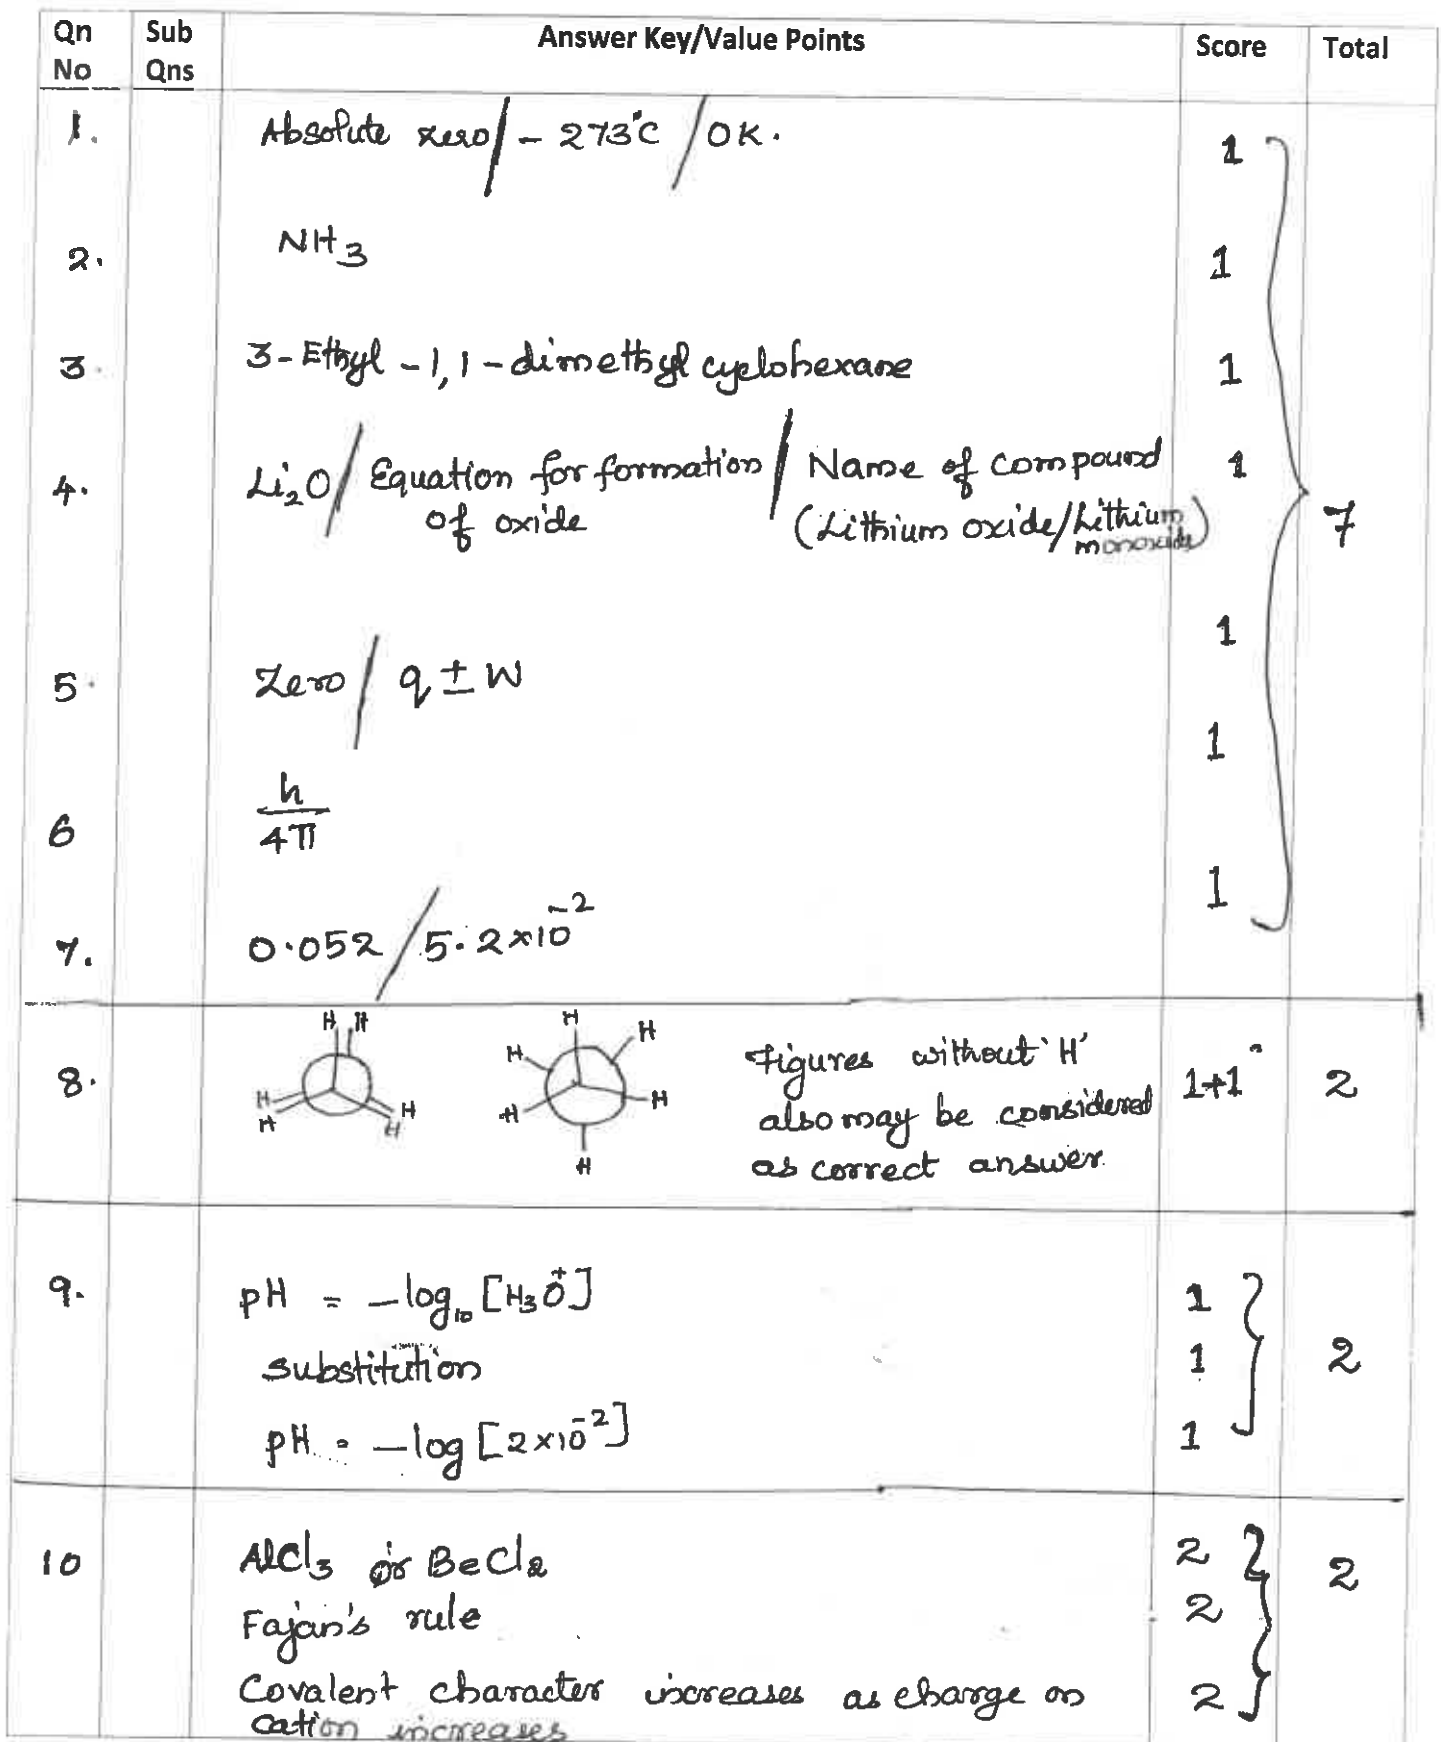 Qn No Sub Qns Answer Key/Value Points Score Total
1. Absolute zero / - 273°C / 0K. 1
2. NH3 1
3. 3-Ethyl-1,1-dimethyl cyclohexane 1
4. Li2O / Equation for formation of oxide / Name of compound (Lithium oxide/Lithium monoxide) 1
7
5. Zero / q ± W 1
6 h/4π 1
7. 0.052 / 5.2×10⁻² 1
H H H H H H
H H H H H H
8. Figures without 'H' also may be considered as correct answer. 1+1 2
9. pH = -log10 [H3O⁺] 1
substitution 1 2
pH = -log [2×10⁻²] 1
10 AlCl3 or BeCl2 2 2
Fajan's rule 2
Covalent character increases as charge on 2
cation increases